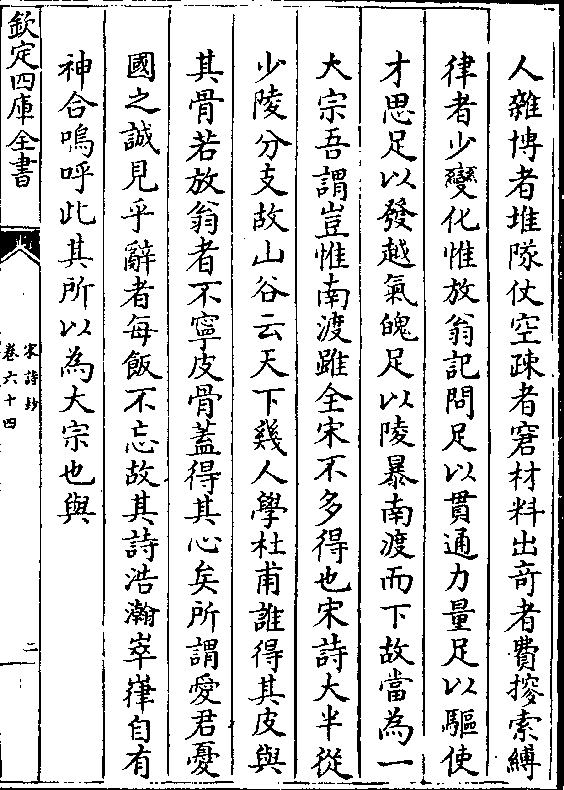 人雜博者堆隊仗空疎者窘材料出竒者費搜索縛
律者少變化惟放翁記問足以貫通力量足以驅使
才思足以發越氣魄足以陵暴南渡而下故當為一
大宗吾謂豈惟南渡雖全宋不多得也宋詩大半從
少陵分支故山谷云天下幾人學杜甫誰得其皮與
其骨若放翁者不寧皮骨蓋得其心矣所謂愛君憂
國之誠見乎辭者每飯不忘故其詩浩瀚崒嵂自有
神合嗚呼此其所以為大宗也與
欽定四庫全書
宋詩鈔
卷六十四
二